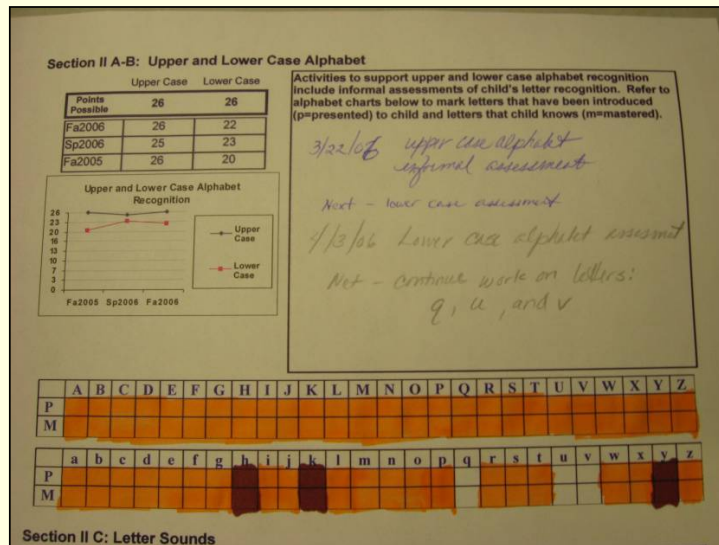 Section II A-B: Upper and Lower Case Alphabet
Upper Case Lower Case
Points Possible 26 26
Fa2006 26 22
Sp2006 25 23
Fa2005 26 20
Upper and Lower Case Alphabet
Recognition
26
23
20
16
13
10
7
3
0
Upper
Case
Lower
Case
Fa2005 Sp2006 Fa2006
Activities to support upper and lower case alphabet recognition
include informal assessments of child's letter recognition. Refer to
alphabet charts below to mark letters that have been introduced
(p=presented) to child and letters that child knows (m=mastered).
3/22/06 upper case alphabet
informal assessment
Next - lower case assessment
4/3/06 Lower case alphabet assessment
Net - continue work on letters:
q, u, and v
A B C D E F G H I J K L M N O P Q R S T U V W X Y Z
P
M
a b c d e f g h i j k l m n o p q r s t u v w x y z
P
M
Section II C: Letter Sounds